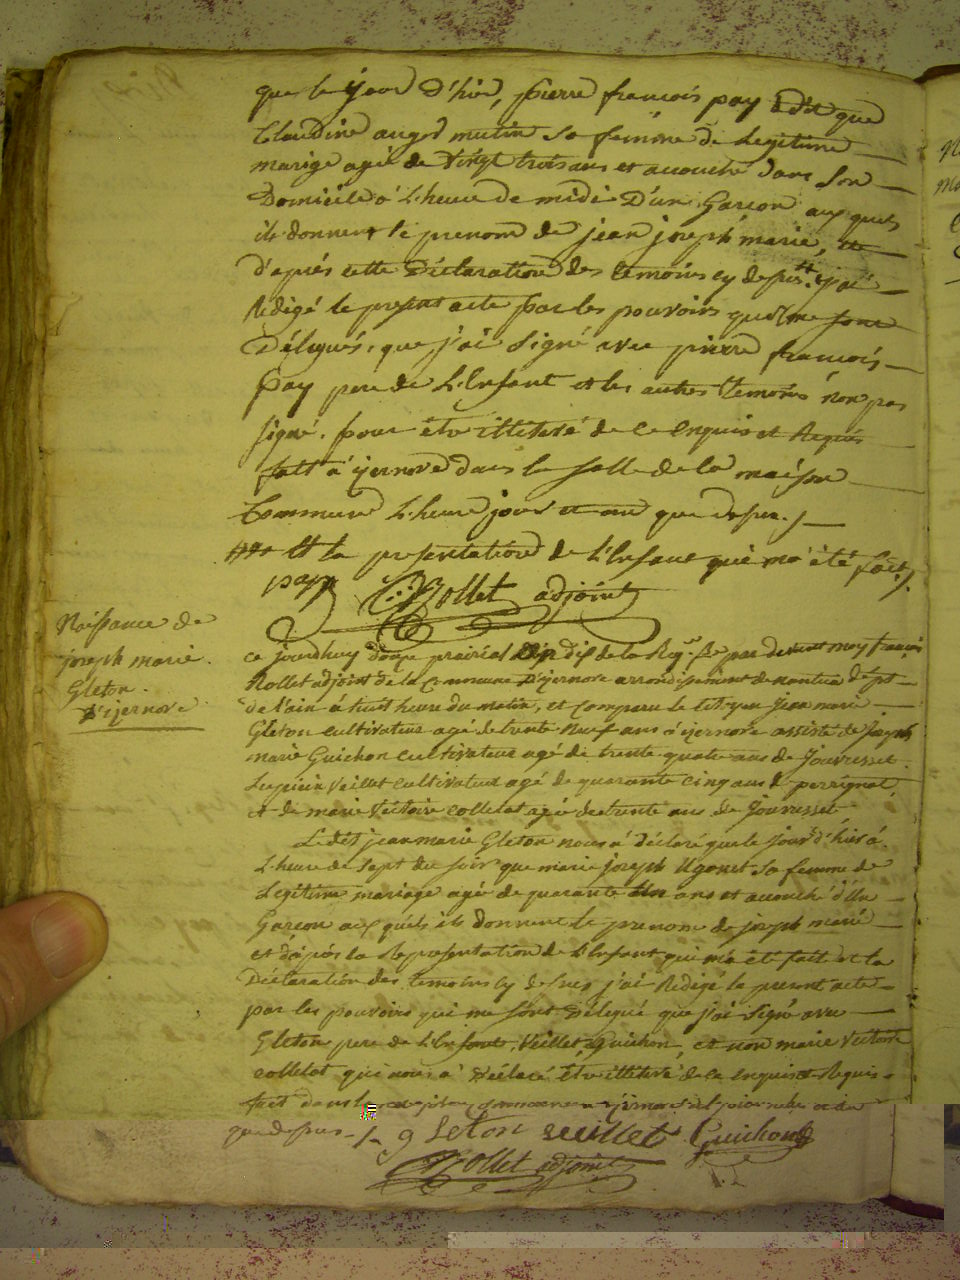 que le jour d'hier, pierre francois pay a dit que
Claudine auger mutin sa femme de Legitime
mariage agée de vingt trois ans et accouché dans son
Domicile a L'heure de midi D'un Garcon aux quels
ils donnent le prenom de jean joseph marie,
d'aprés cette Déclaration des temoins cy desus. j'ai
Redigé le present acte par les pouvoirs qui me sont
Délegués, que j'ai Signé avec pierre francois
pay pere de L'Enfant et les autres temoins non pas
signé. pour être illiteré de ce Enquis et Requis
fait a ijernore dans la salle de la maison
Commune L'heure jour et an que desus./.
et la presentation de L'Enfant qui ma été fait./.
pay Rollet adjoint
Naissance de
joseph marie
Gleton.
D'ijernore
ce jourdhuy douze prairial an dix de la Rep. fse par devant moy francois
Rollet adjoint de la Commune D'ijernore arrondissement de nantua dépt
de l'ain à huit heure du matin, et comparu le Citoyen jean marie
Gleton cultivateur agé de trente neuf ans a ijernore assisté de joseph
marie Guichon cultivateur agé de trente quatre ans de Jouvresset
veillet cultivateur agé de quarante cinq ans de perrignat
et de marie victoire colletat agé de trente ans de Jouvresset
Ledit jean marie Gleton nous a déclaré que le jour d'hier à
L'heure de sept du soir que marie joseph Ugonet sa femme de
Legitime mariage agé de quarante un ans et accouché d'Un
Garcon aux quels ils donnent le prenom de joseph marie
et d'après la Representation de L'Enfant qui ma été fait et la
Déclaration des temoins cy desus j'ai Redigé le present acte
par les pouvoirs qui me sont Delegué que j'ai signé avec
Gleton pere de L'Enfant, Veillet, Guichon, et non marie Victoire
colletat qui nous a Déclaré être illiteré de ce enquis et Requis
fait dans
que desus ./. gleton veillet Guichon
Rollet adjoint